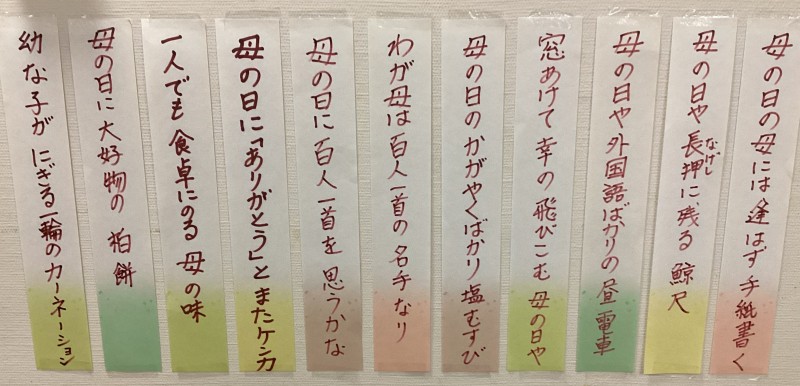 母の日の母には逢はず手紙書く
母の日や長押に残る鯨尺
なげし
母の日や外国語ばかりの昼電車
窓あけて幸の飛びこむ母の日や
母の日のかがやくばかり塩むすび
わが母は百人一首の名手なり
母の日に百人一首を思うかな
母の日に「ありがとう」とまたケンカ
一人でも食卓にのる母の味
母の日に大好物の柏餅
幼な子がにぎる一輪のカーネーション